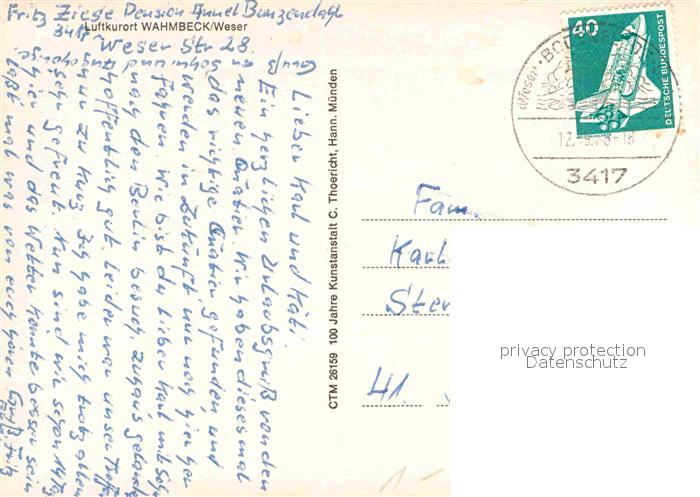 Fritz Ziege Pension Annel Bunzendahl
Luftkurort WAHMBECK/Weser
Weser Str 28.
Lieber Karl und Käti.
Ein herzlichen Urlaubsgruß von den
neuen Quatier. Wir haben dieses mal
das richtige Quatier gefunden, und
werden in Zukunft nur noch hier her
fahren. Wie bist du lieber Karl mit
nach den Berlin besuch, zuhaus gelandet
hoffentlich gut. Leider war unser Treffen
nur zu kurz. Ich habe mich trotz allem
sehr gefreut. Nun sind wir schon 14 Tg
hier und das Wetter könnte besser sein
laßt mal was von euch hören Gruß Fritz
CTM 26159 100 Jahre Kunstanstalt C. Thoericht, Hann. Münden
40
DEUTSCHE BUNDESPOST
3417
Fam
Karl
Ster
41.
privacy protection
Datenschutz
1-